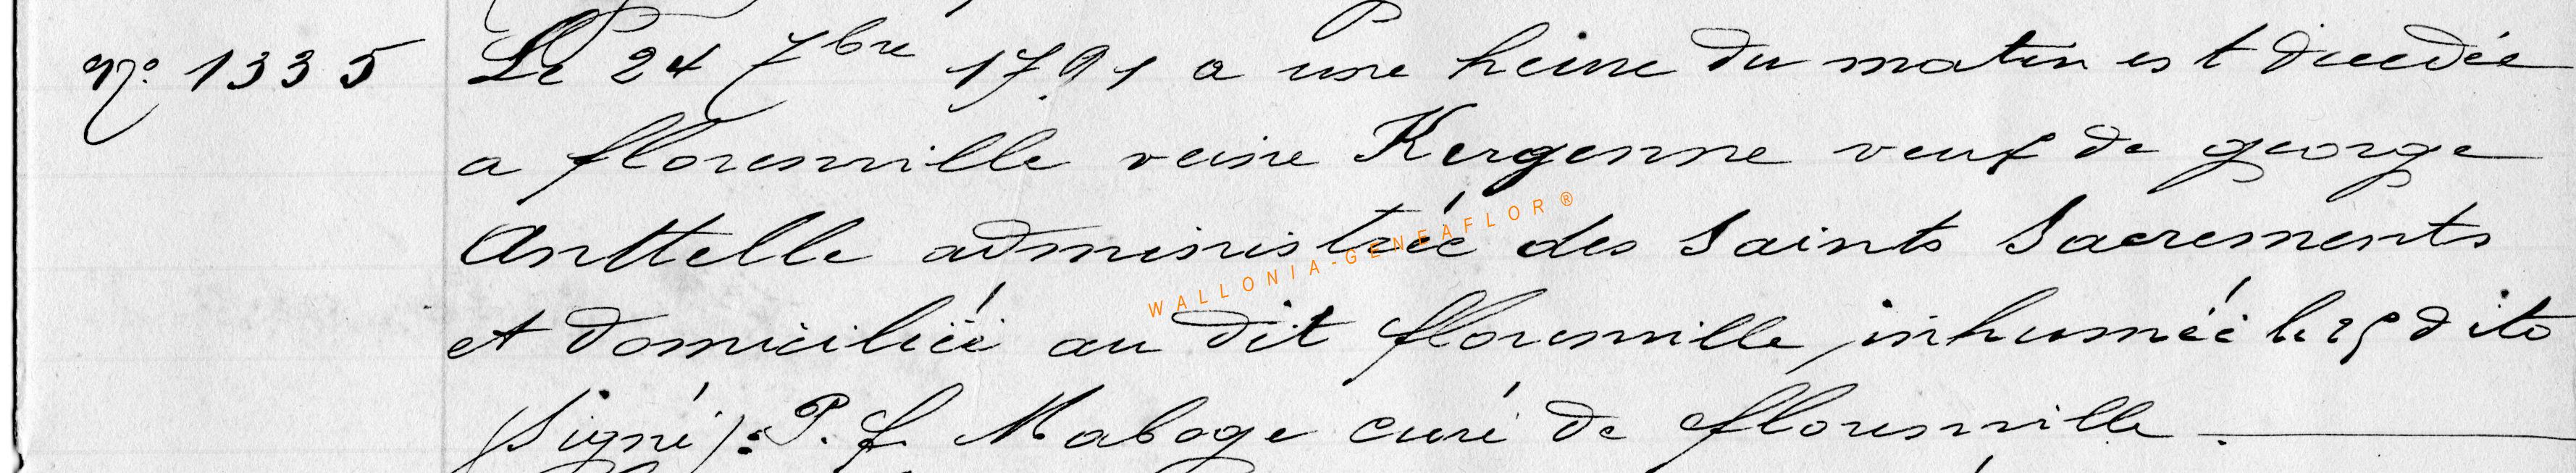 N° 1335 Le 24 7bre 1791 a une heure du matin est décedée
a florenville reine Kergenne veuf de george
Anttelle administrée des saints Sacrements
WALLONIA-GENEAFLOR®
et domiciliée au dit florenville, inhumée le 25 dito
(signé): P. f. Maboge curé de florenville.